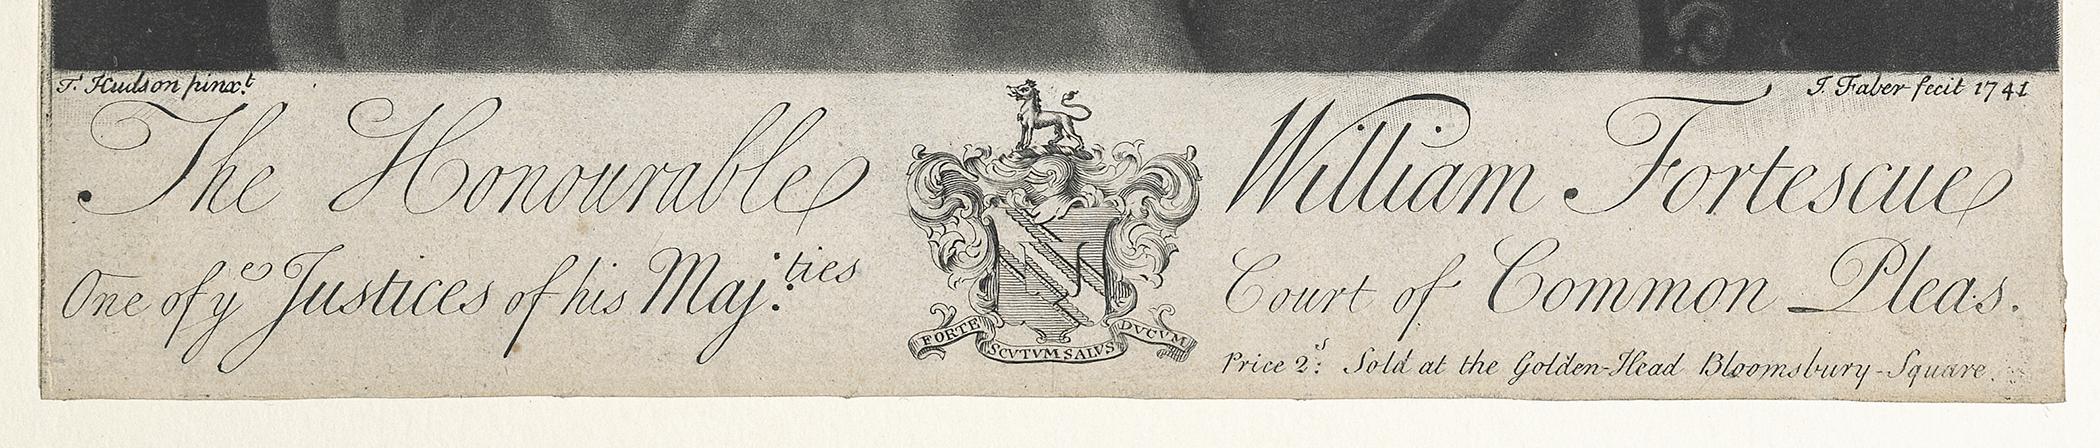 T. Hudson pinx.t
J. Faber fecit 1741
The Honourable William Fortescue
One of ye Justices of his Maj:ties Court of Common Pleas.
FORTE SCVTVM SALVS DVCVM
Price 2s: Sold at the Golden-Head Bloomsbury-Square.